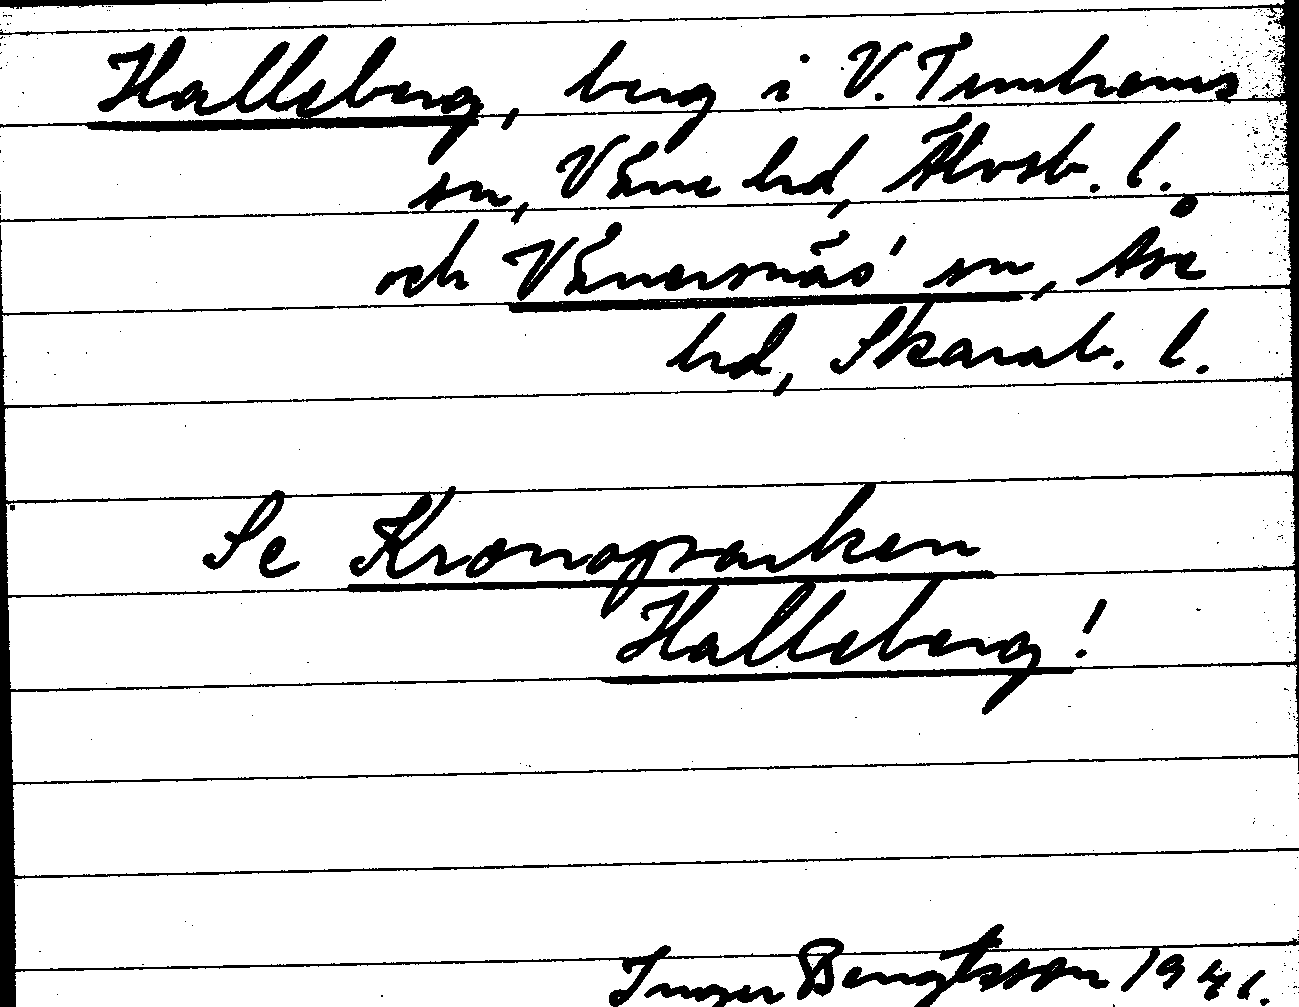 Halleberg, berg i V. Tunhems
sn, Väne hd, Älvsb. l.
och Vänersnäs' sn, Åse
hd, Skarab. l.
Se Kronoparken
Halleberg!
Inger Bengtsson 1941.